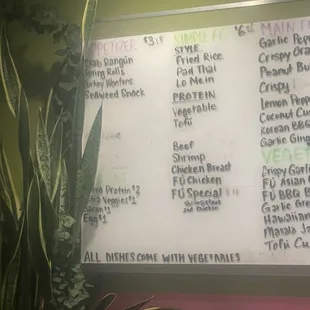 APPETIZER $3.18
Crab Rangun
Spring Rolls
Turkey Wontons
Seaweed Snack
Protein $2
Veggies $1
$1
Egg $1
SIMPLE $6
STYLE
Fried Rice
Pad Thai
Lo Mein
PROTEIN
Vegetable
Tofu
Beef
Shrimp
Chicken Breast
FÜ Chicken
FÜ Special
Shrimp, Steak
and Chicken
MAIN
Garlic Pepp
Crispy Oran
Peanut Bu
Crispy
Lemon Pepp
Coconut Cu
Korean BBQ
Garlic Ging
VEGET
Crispy Garlic
FÜ Asian
FÜ BBQ B
Garlic Gre
Hawaiian
Masala Ja
Tofu Cu
ALL DISHES COME WITH VEGETABLES